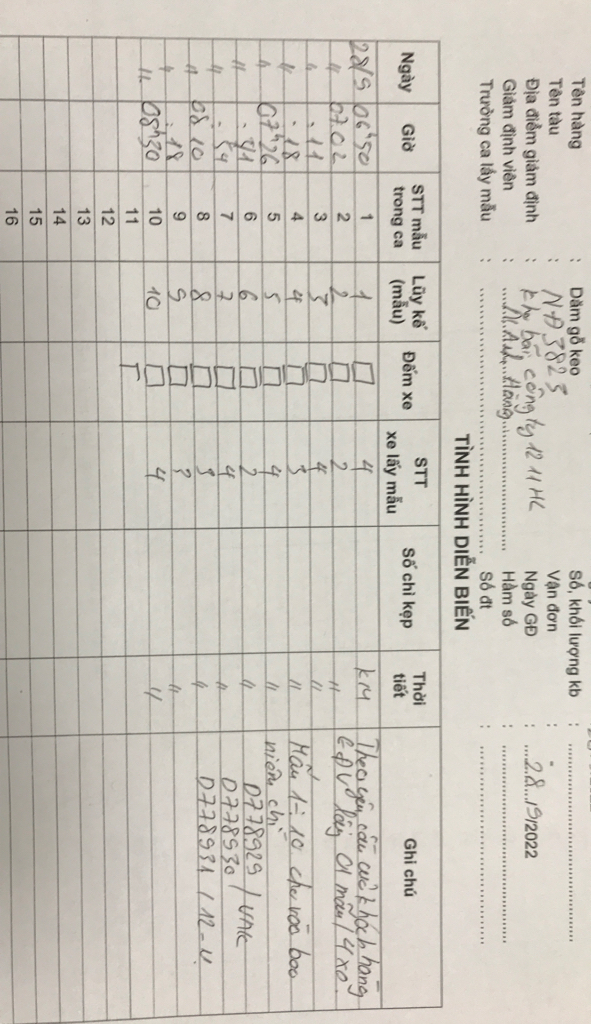 Tên hàng : Dăm gỗ keo Số, khối lượng kb :
Tên tàu : NĐ 3823 Vận đơn :
Địa điểm giám định : khu bãi công ty 1211 HL Ngày GĐ : 28/9/2022
Giám định viên : Hằng Hầm số :
Trưởng ca lấy mẫu : Số đt :
TÌNH HÌNH DIỄN BIẾN
Ngày Giờ STT mẫu trong ca Lũy kế (mẫu) Đếm xe STT xe lấy mẫu Số chì kẹp Thời tiết Ghi chú
28/9 06h50 1 1 □ 4 KM Theo yêu cầu của khách hàng
" 0702 2 2 □ 2 " lấy 01 mẫu / 4 xe.
" : 11 3 3 □ 4 "
" : 18 4 4 □ 3 " Mẫu 1-10 cho vào bao
" 07h26 5 5 □ 4 " niêm chì
" 6 6 □ 2 " D778929 /
" : 54 7 7 □ 4 " D778930
" 0810 8 8 □ 3 " D778931 /
" : 18 9 9 □ 3 "
" 08h30 10 10 □ 4 "
11
12
13
14
15
16